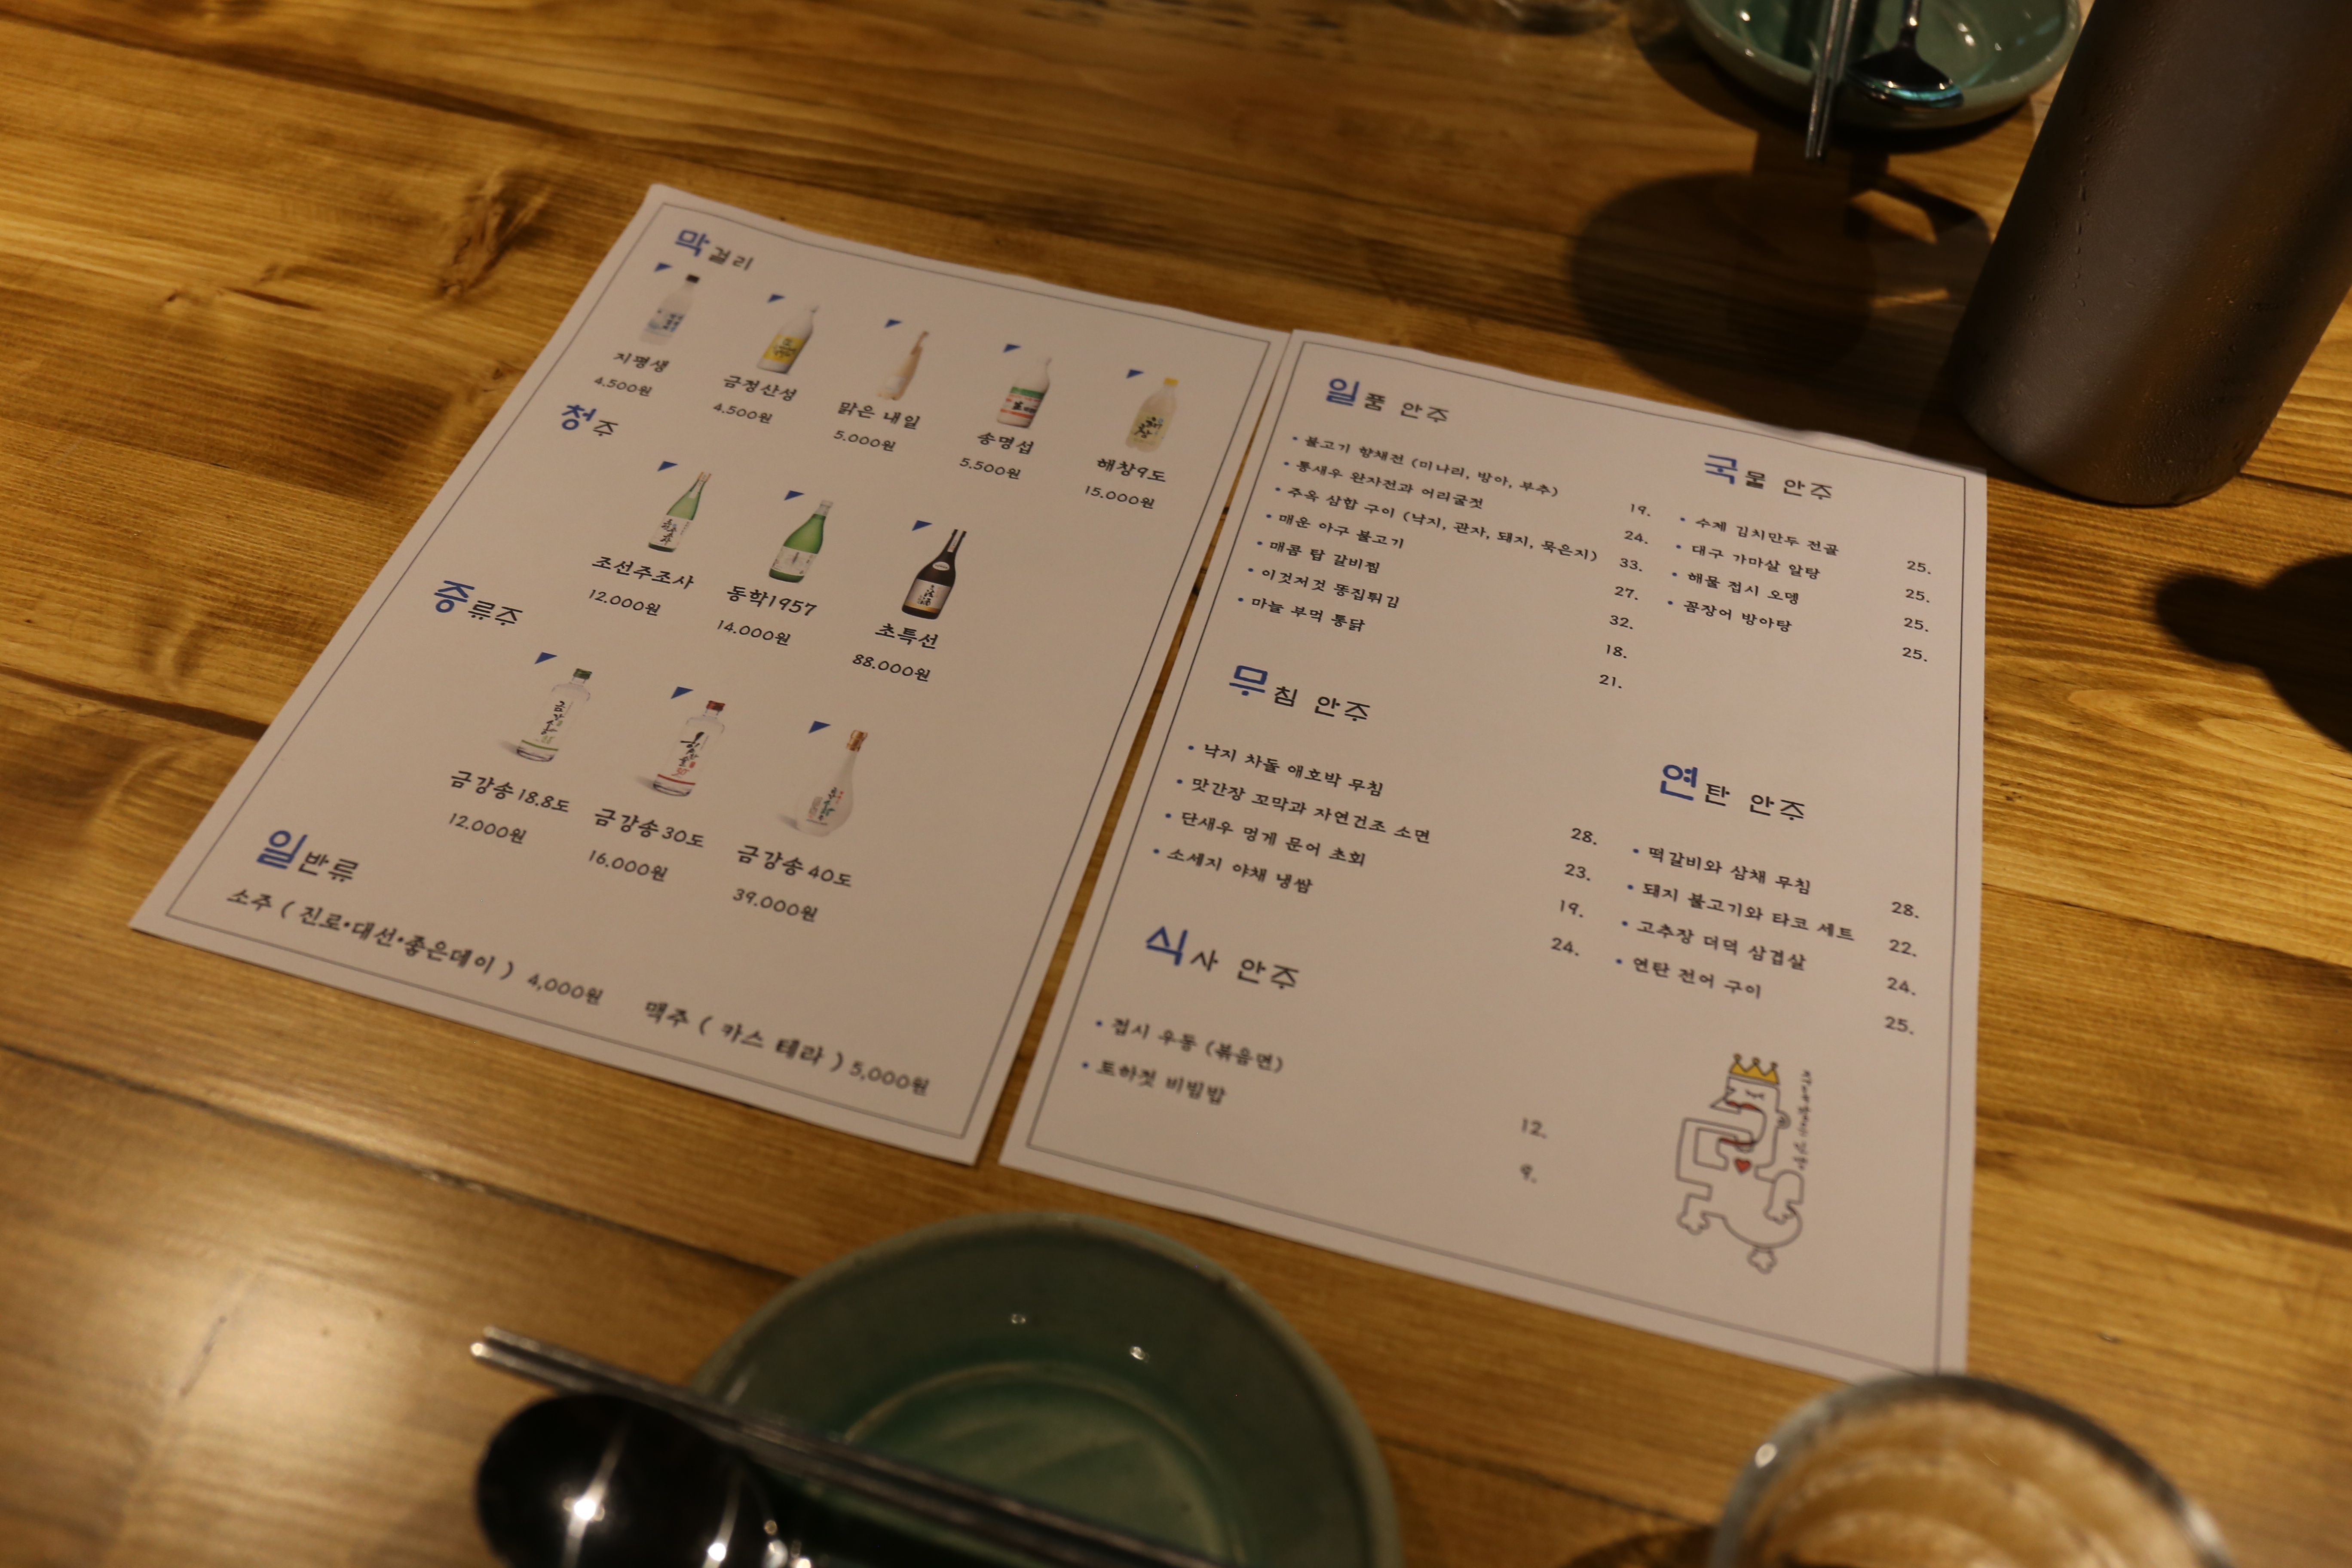 막걸리
지평생
4.500원
금정산성
4.500원
맑은 내일
5.000원
송명섭
5.500원
해창9도
15.000원
청주
조선주조사
12.000원
동학1957
14.000원
초특선
88.000원
증류주
금강송18.8도
12.000원
금강송30도
16.000원
금강송40도
39.000원
일반류
소주 ( 진로•대선•좋은데이 ) 4,000원
맥주 ( 카스 테라 ) 5,000원
일품 안주
• 불고기 향채전 (미나리, 방아, 부추) 19.
• 통새우 완자전과 어리굴젓 24.
• 주옥 삼합 구이 (낙지, 관자, 돼지, 묵은지) 33.
• 매운 아구 불고기 27.
• 매콤 탑 갈비찜 32.
• 이것저것 똥집튀김 18.
• 마늘 부먹 통닭 21.
무침 안주
• 낙지 차돌 애호박 무침 28.
• 맛간장 꼬막과 자연건조 소면 23.
• 단새우 멍게 문어 초회 19.
• 소세지 야채 냉쌈 24.
식사 안주
• 접시 우동 (볶음면) 12.
• 토하젓 비빔밥 9.
국물 안주
• 수제 김치만두 전골 25.
• 대구 가마살 알탕 25.
• 해물 접시 오뎅 25.
• 꼼장어 방아탕 25.
연탄 안주
• 떡갈비와 삼채 무침 28.
• 돼지 불고기와 타코 세트 22.
• 고추장 더덕 삼겹살 24.
• 연탄 전어 구이 25.